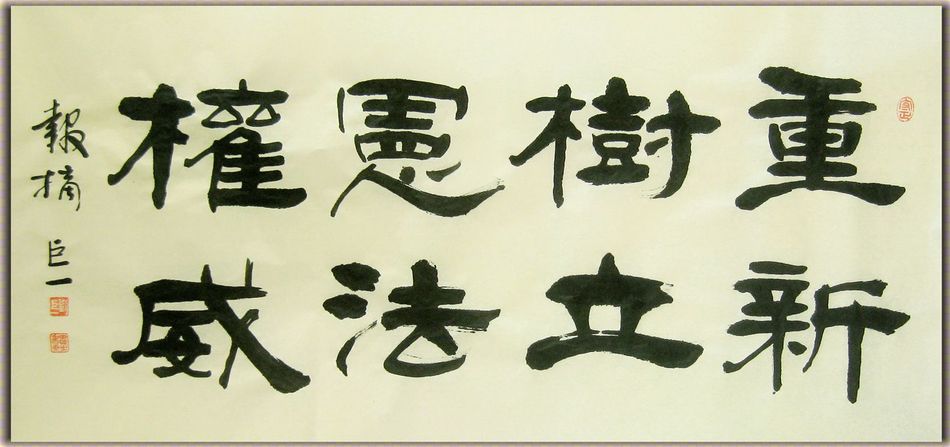 重新
樹立
憲法
權威
報摘 巨一